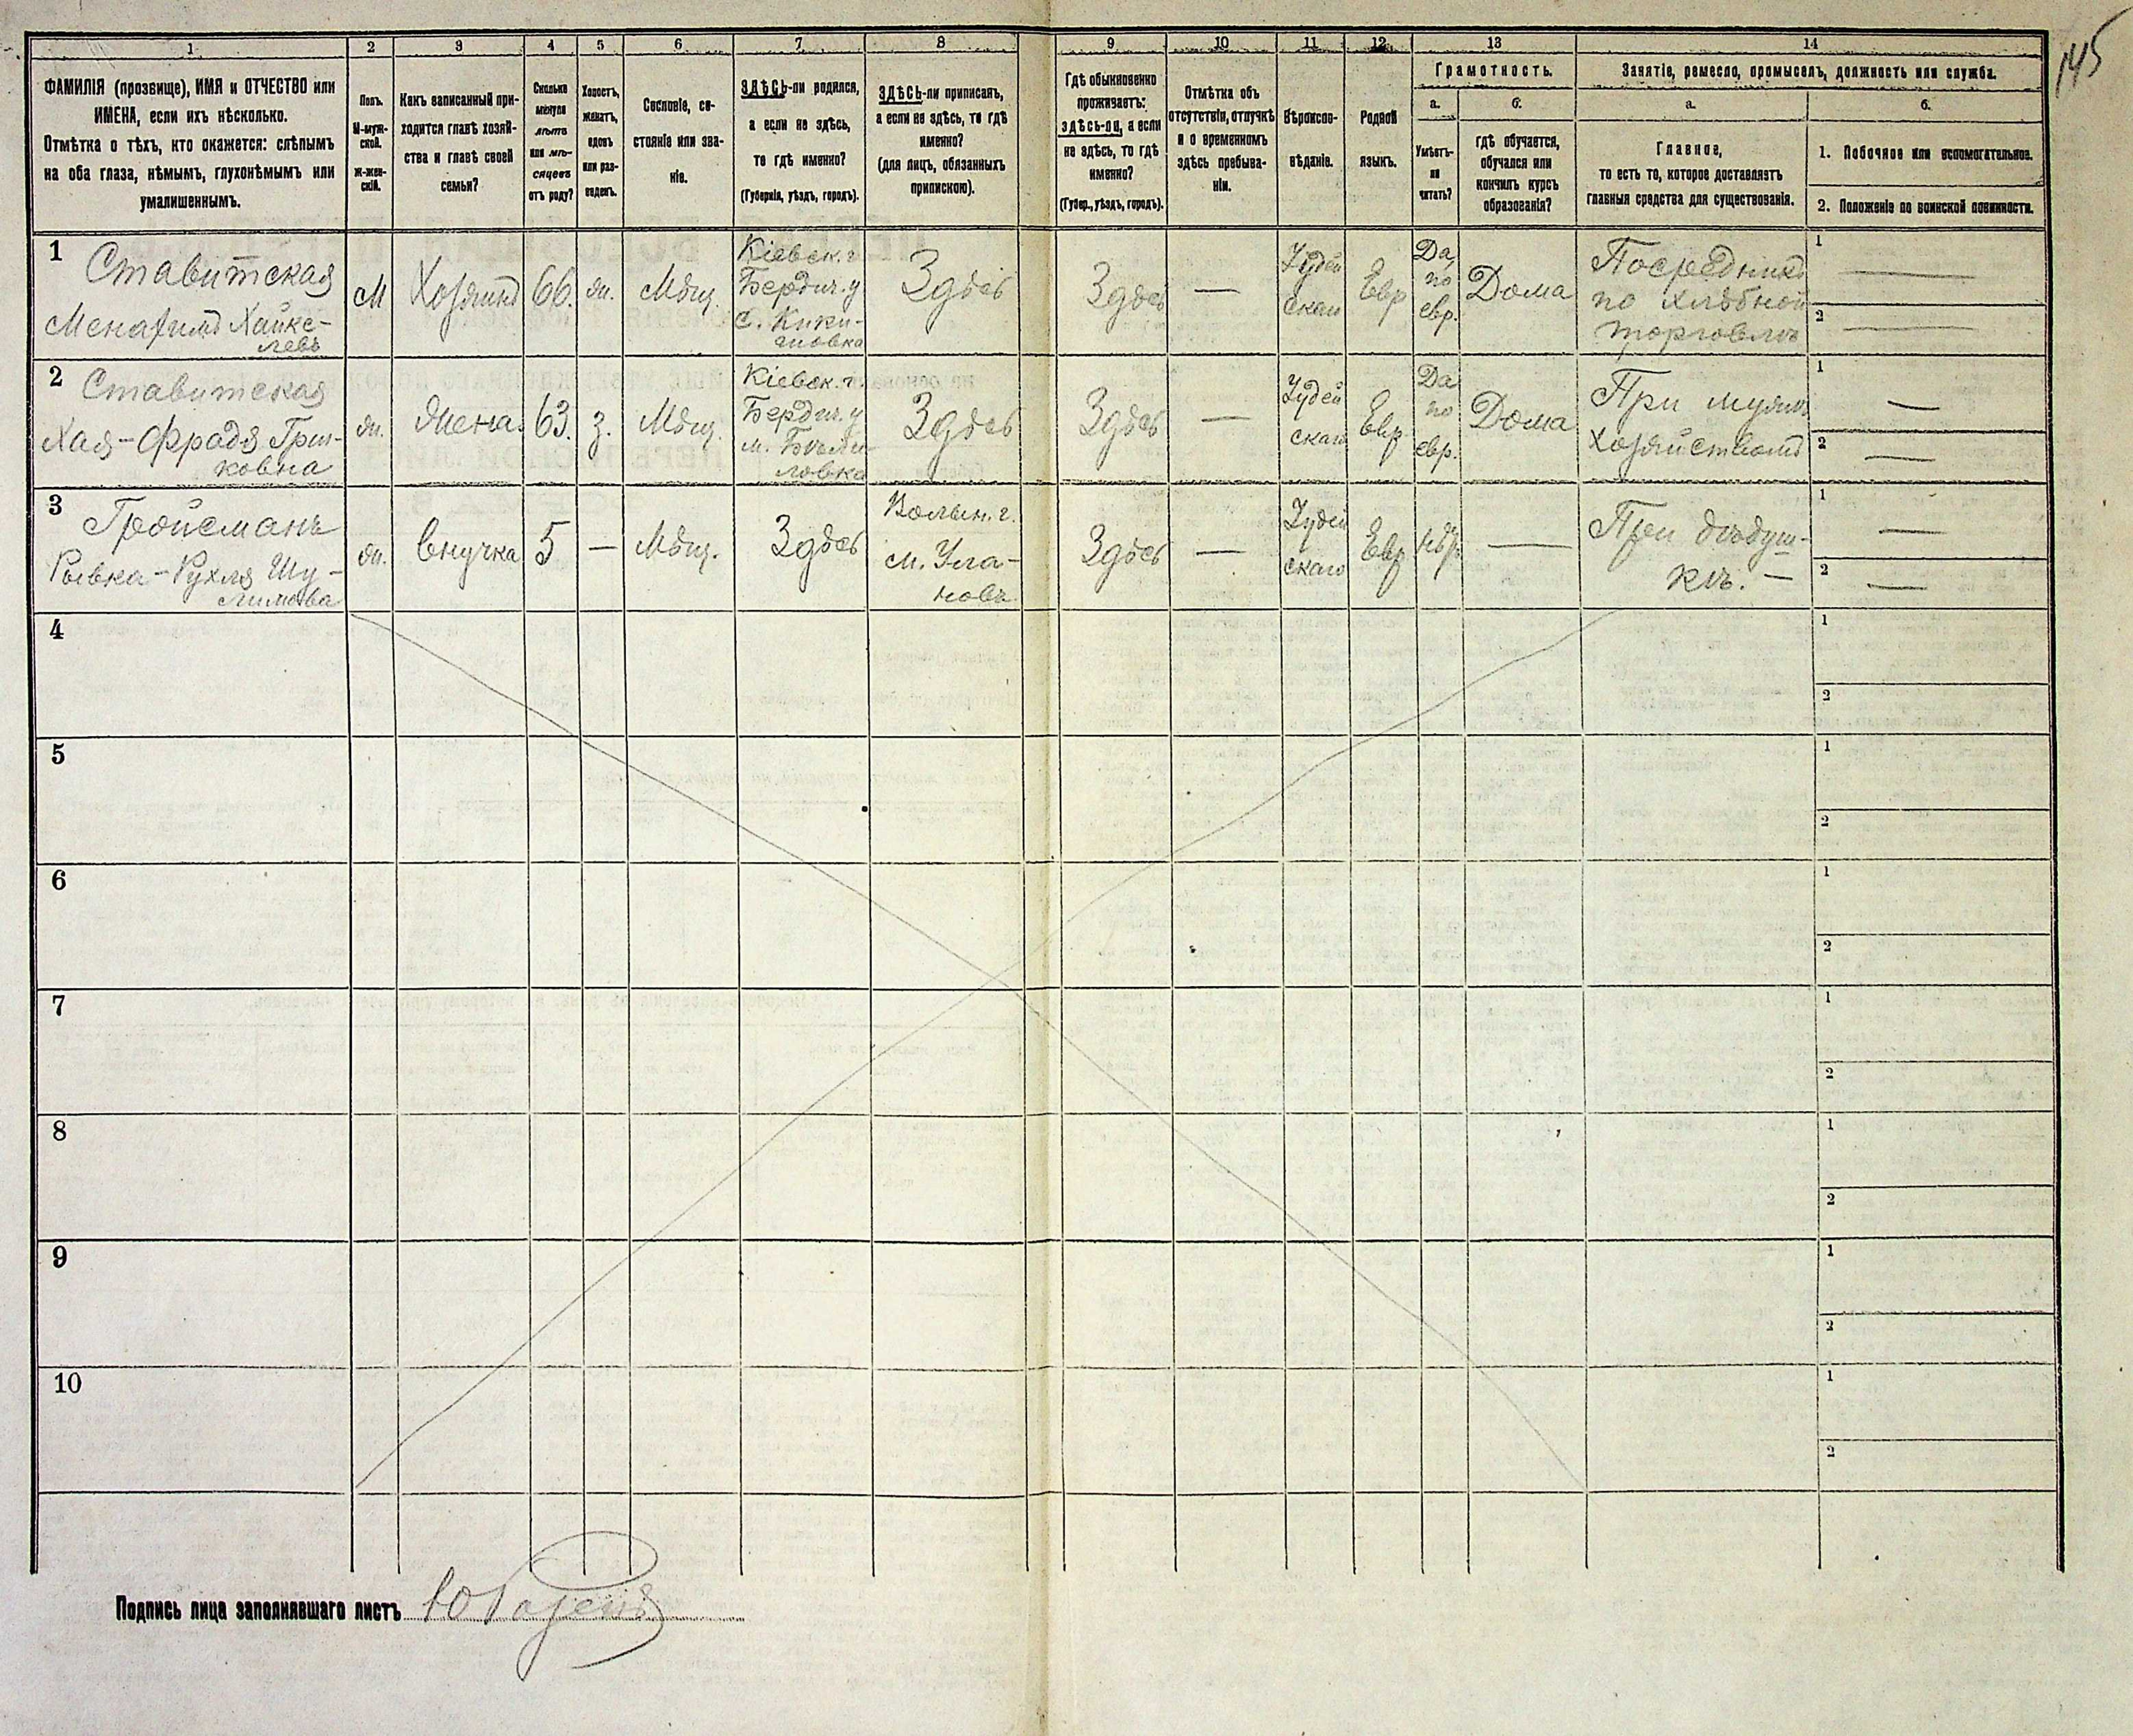 145
1 2 3 4 5 6 7 8 9 10 11 12 13 14
ФАМИЛІЯ (прозвище), ИМЯ и ОТЧЕСТВО или
ИМЕНА, если ихъ нѣсколько.
Отмѣтка о тѣхъ, кто окажется: слѣпымъ
на оба глаза, нѣмымъ, глухонѣмымъ или
умалишеннымъ.
Полъ.
М-муж-
ской.
ж-жен-
скій.
Какъ записанный при-
ходится главѣ хозяй-
ства и главѣ своей
семьи?
Сколько
минуло
лѣтъ
или мѣ-
сяцевъ
отъ роду?
Холостъ,
женатъ,
вдовъ
или раз-
веденъ.
Сословіе, со-
стояніе или зва-
ніе.
ЗДѢСЬ-ли родился,
а если не здѣсь,
то гдѣ именно?
(Губернія, уѣздъ, городъ).
ЗДѢСЬ-ли приписанъ,
а если не здѣсь, то гдѣ
именно?
(для лицъ, обязанныхъ
припискою).
Гдѣ обыкновенно
проживаетъ:
здѣсь-ли, а если
не здѣсь, то гдѣ
именно?
(Губер., уѣздъ, городъ).
Отмѣтка объ
отсутствіи, отлучкѣ
и о временномъ
здѣсь пребыва-
ніи.
Вѣроиспо-
вѣданіе.
Родной
языкъ.
Грамотность.
а.
Умѣетъ-
ли
читать?
б.
гдѣ обучается,
обучался или
кончилъ курсъ
образованія?
Занятіе, ремесло, промыселъ, должность или служба.
а.
Главное,
то есть то, которое доставляетъ
главныя средства для существованія.
б.
1. Побочное или вспомогательное.
2. Положеніе по воинской повинности.
1
Ставитская
Менахимъ Хайке-
левъ
М
Хозяинъ
66.
ж.
Мѣщ.
Кіевск. г.
Бердич. у
с.
Здѣсь
Здѣсь
—
Іудей
скаго
Евр
Да,
по
евр.
Дома
Посредникъ
по хлѣбной
торговлѣ
1 —
2 —
2
Ставитская
Хая-Фрадя
ковна
ж.
Жена.
63.
з.
Мѣщ.
Кіевск. г.
Бердич. у
м. Бѣли-
ловка
Здѣсь
Здѣсь
—
Іудей
скаго
Евр.
Да
по
евр.
Дома
При
хозяйствомъ
1 —
2 —
3
Гройсманъ
Рывка-Рухля Шу-
лимова
ж.
Внучка
5
—
Мѣщ.
Здѣсь
Волын. г.
м. Ула-
новъ
Здѣсь
—
Іудей
скаго
Евр
При дѣдуш-
кѣ. —
1 —
2 —
4
1
2
5
1
2
6
1
2
7
1
2
8
1
2
9
1
2
10
1
2
Подпись лица заполнявшаго листъ